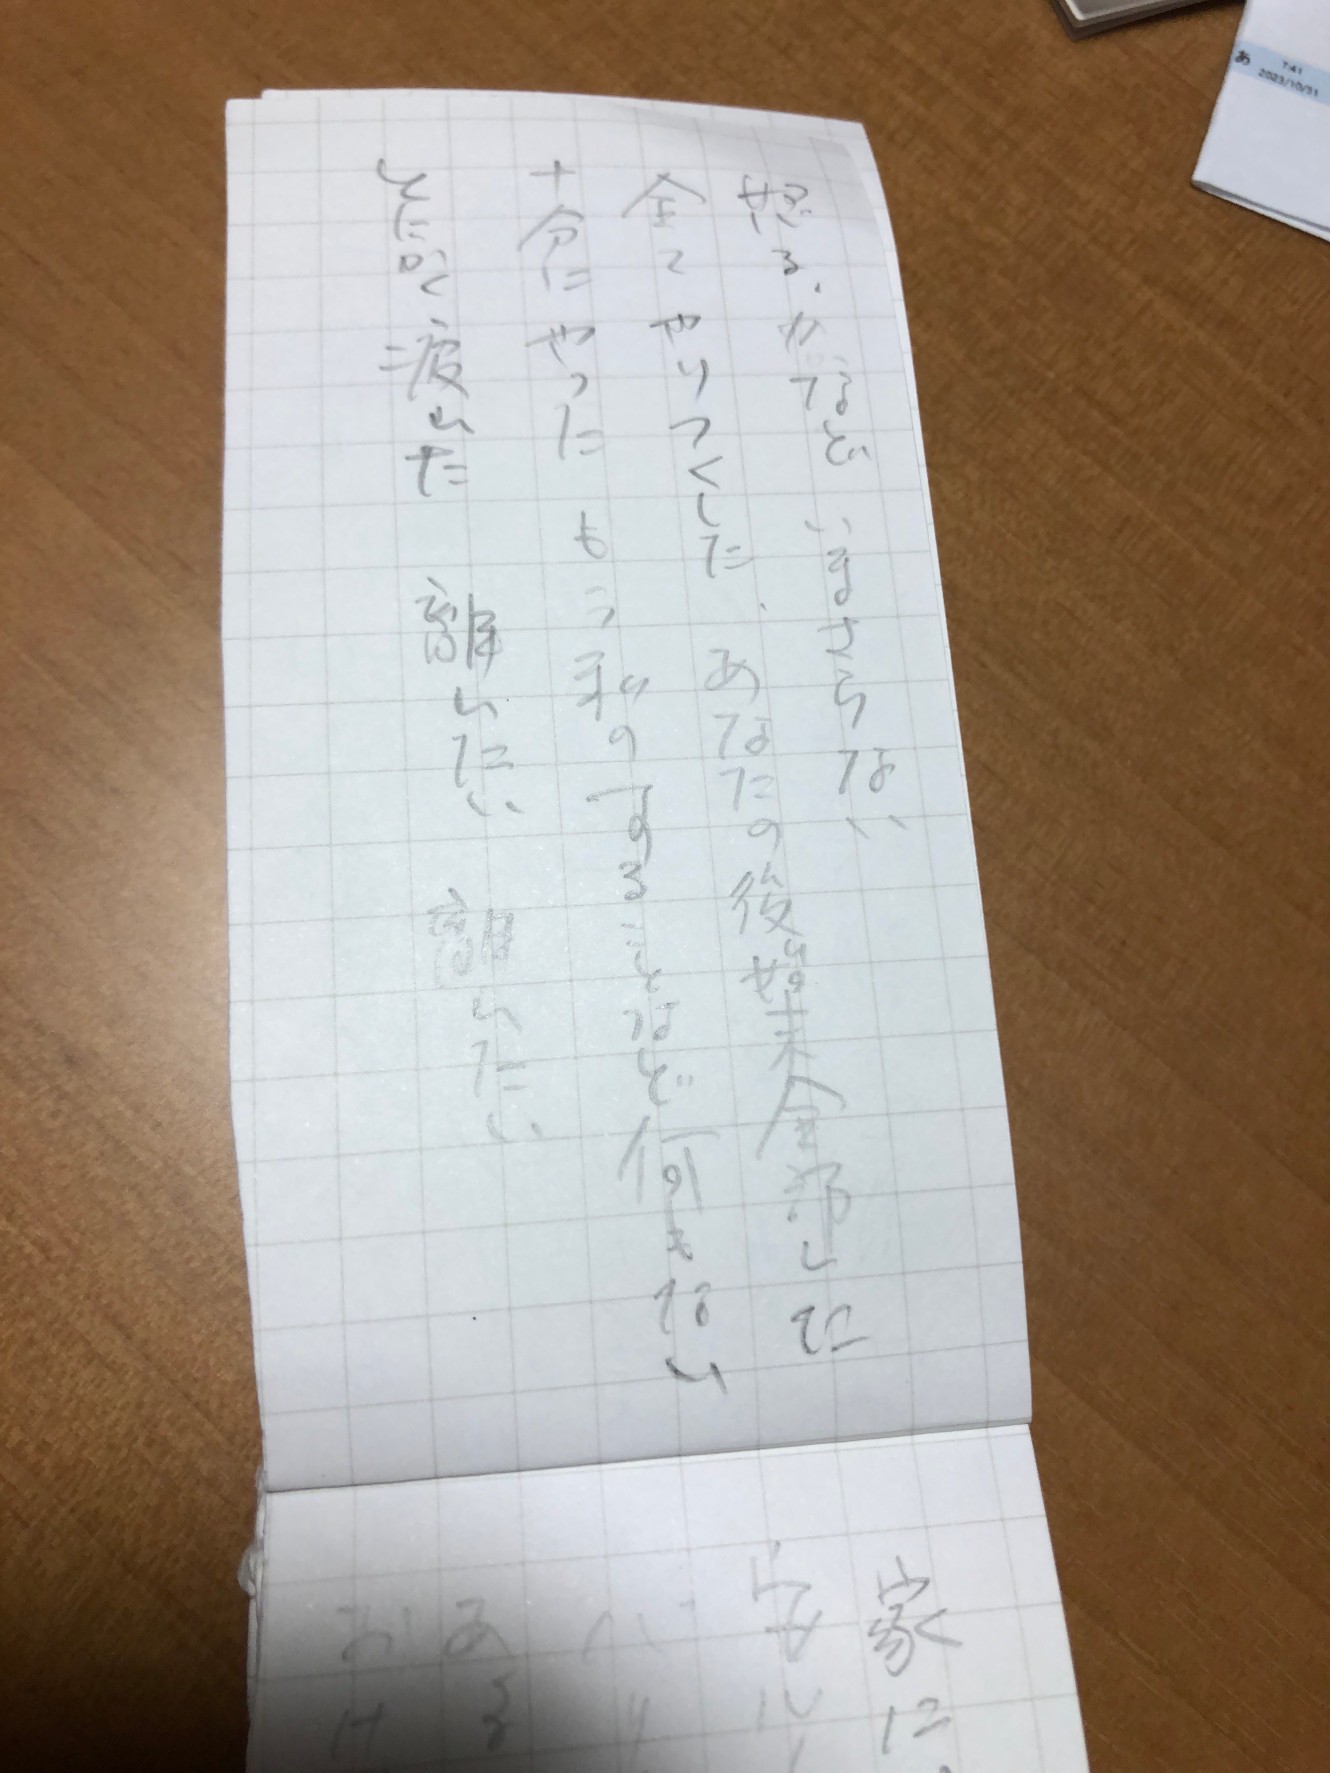 怒る力など いまさらない
全てやりつくした、あなたの後始末全部した
十分にやった もう私のすることなど何もない
とにかく疲れた 離れたい 離れたい
家に
ある
あ 7:41
2023/10/31